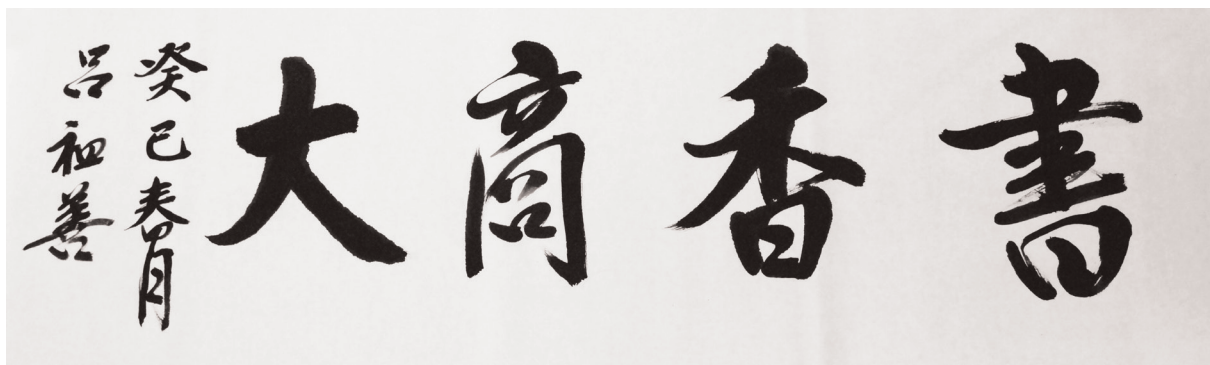 書香商大
癸巳春月
呂祖善